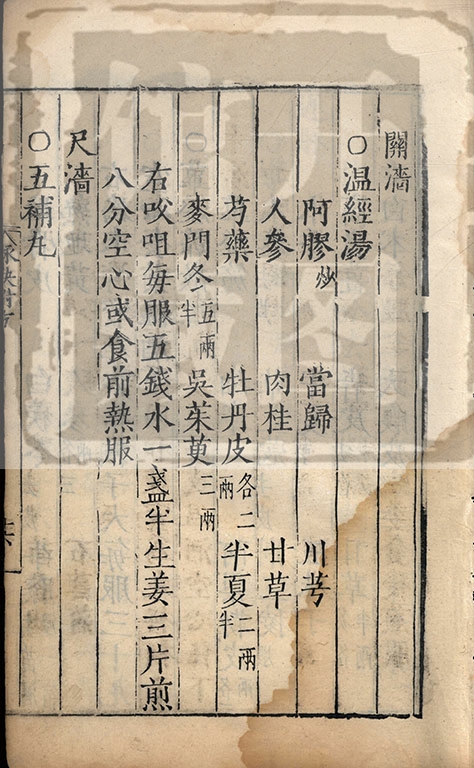 關濇
○温經湯
阿膠炒　當歸　川芎
人參　肉桂　甘草
芍藥　牡丹皮各二兩　半夏二兩半
麥門冬五兩半　吳茱萸三兩
右㕮咀每服五錢水一盞半生姜三片煎
八分空心或食前熱服
尺濇
○五補丸